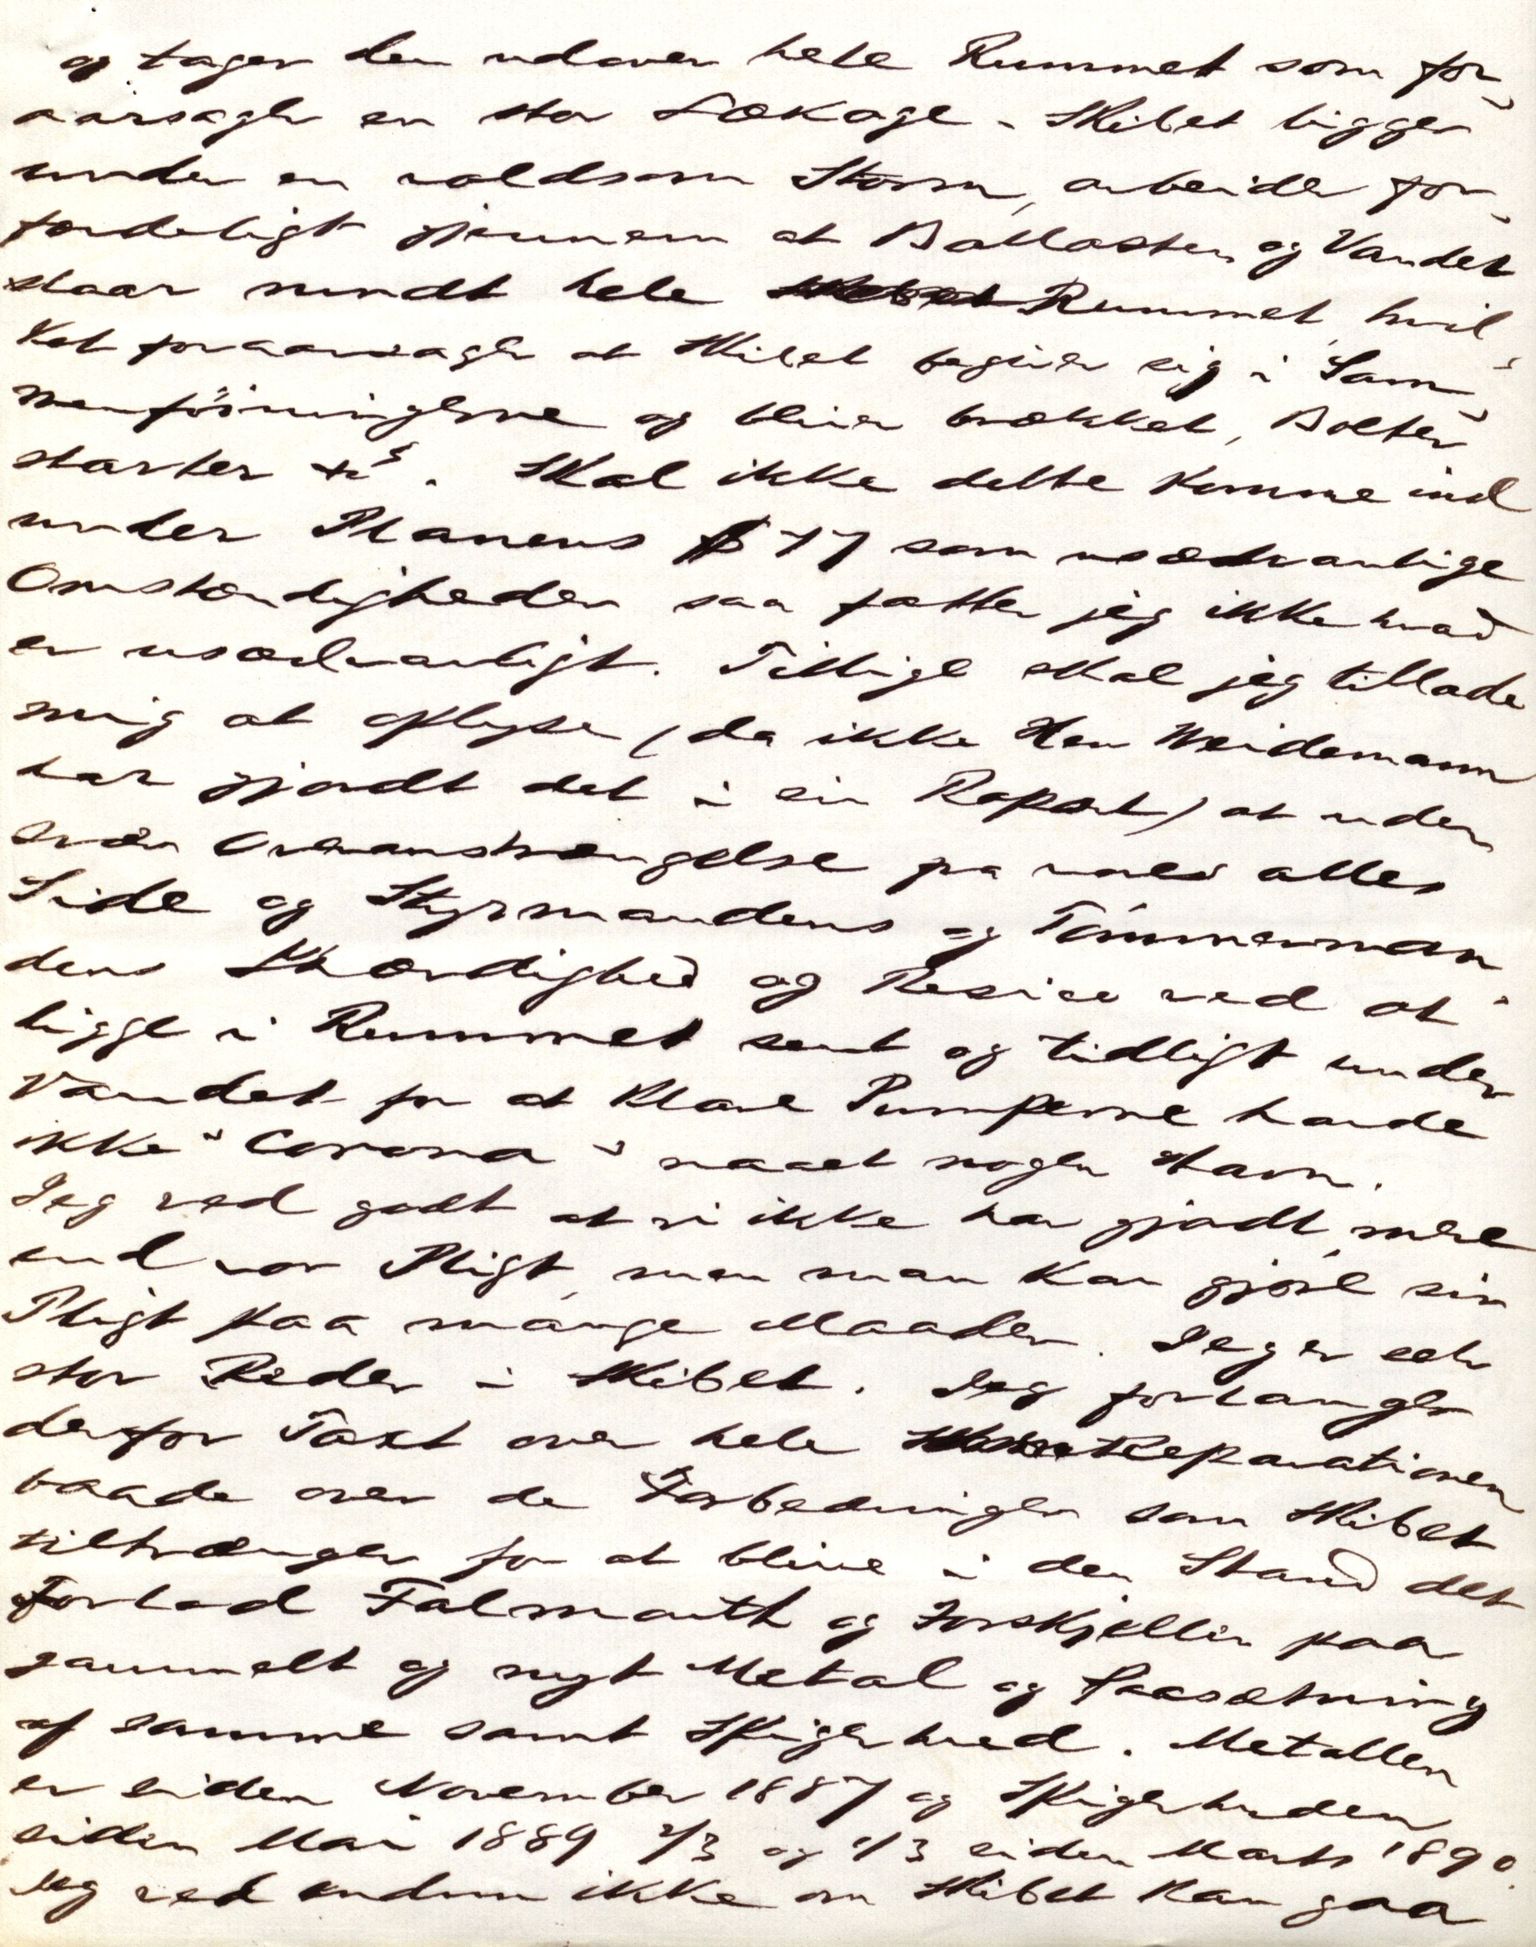 og tager den udover hele Rummet som for-
aarsager en stor Lækage. Skibet ligger
under en voldsom Storm, arbeider for-
færdeligt gjennem at Ballasten og Vandet
staar rundt hele Rummet, hvil-
ket foraarsager at Skibet begiver sig i Sam-
menføiningerne og bliver brækket, Bolter
starter &c. Skal ikke dette komme ind
under Planens § 17 som usædvanlige
Omstændigheder saa fatter jeg ikke hvad
er usædvanligt. Tillige skal jeg tillade
mig at oplyse (da ikke Herr Weidemann
har gjordt det i sin Raport) at uden
svær Overanstrængelse fra alles
Side og Styrmandens og Tømmerman-
dens Ihærdighed og Resico ved at
ligge i Rummet sent og tidligt under
Vandet for at klare Pumperne havde
ikke "Corona" naaet nogen Havn.
Jeg ved godt at vi ikke har gjordt mere
end vor Pligt, men man kan gjøre sin
Pligt paa mange Maader. Jeg er selv
stor Reder i Skibet. Jeg forlanger
derfor Taxt over hele Reparationen
baade over de Forbedringer som Skibet
tiltrænger for at blive i den Stand det
forlod Falmouth og Forskjellen paa
gammelt og nyt Metal og Paasætning
af samme samt Spigerhud. Metallen
er siden November 1887 og Spigerhuden
siden Mai 1889 2/3 og 1/3 siden Marts 1890.
Jeg ved endnu ikke om Skibet kan gaa